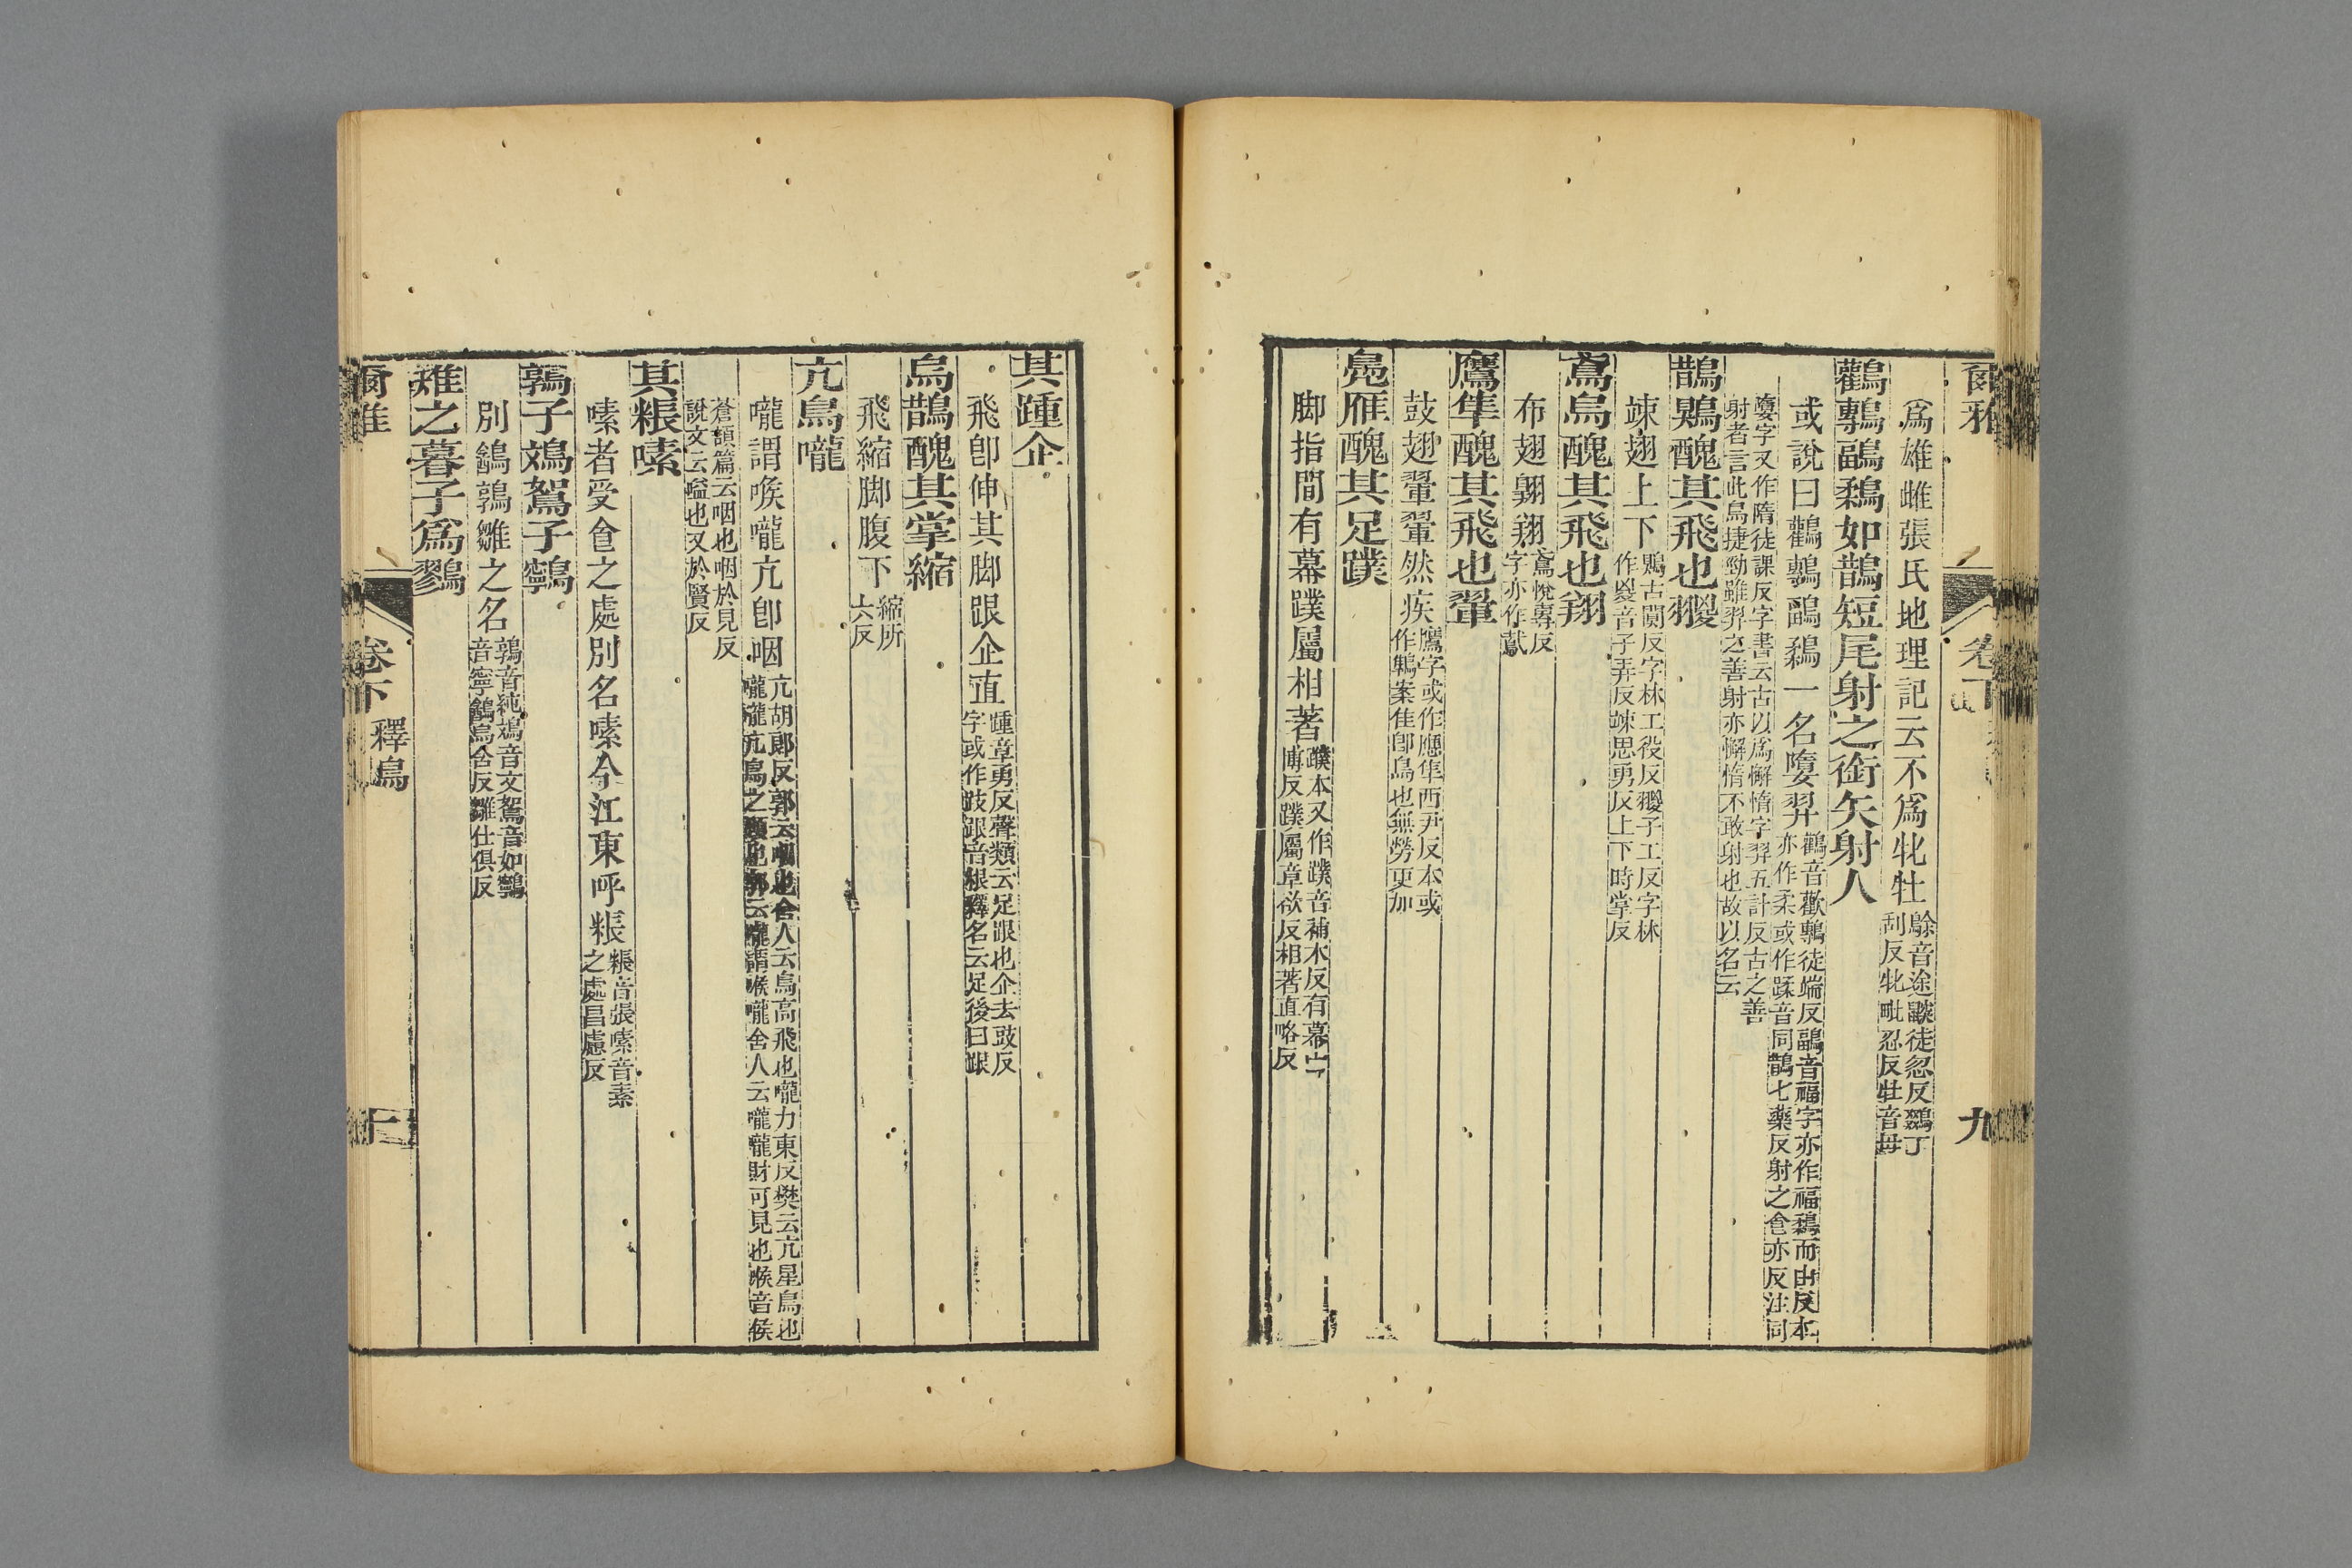 爾雅　卷下　九
爲雄雌張氏地理記云不爲牝牡
鵌音途鼵徒忽反鵽丁
刮反牝毗忍反牡音母
鸛鷒鶝鶔如鵲短尾射之銜矢射人
或說曰鸛鷒鶝鶔一名墮羿
鸛音歡鷒徒端反鶝音福字亦作福鶔而由反本
亦作柔或作蹂音同鵲七藥反射之食亦反注同
墮字又作隋徒課反字書云古以爲懈惰字羿五計反古之善
射者言此鳥捷勁雖羿之善射亦懈惰不敢射也故以名云
鵲鶪醜其飛也翪
竦翅上下
鶪古闃反字林工役反翪子工反字林
作㚇音子弄反竦思勇反上下時掌反
鳶烏醜其飛也翔
布翅翱翔
鳶悅專反
字亦作䳒
鷹隼醜其飛也翬
鼓翅翬翬然疾
鷹字或作應隼西尹反本或
作鵻案隹卽鳥也無勞更加
鳧雁醜其足蹼
脚指間有幕蹼屬相著
蹼本又作蹼音補木反有幕亡
博反蹼屬章欲反相著直略反
其踵企
飛卽伸其脚跟企直
踵章勇反聲類云足跟也企去豉反
字或作跂跟音根釋名云足後曰跟
烏鵲醜其掌縮
飛縮脚腹下
縮所
六反
亢鳥嚨
嚨謂喉嚨亢卽咽
亢胡郎反郭云咽也舍人云鳥高飛也嚨力東反樊云亢星鳥也
嚨嚨亢鳥之頸也郭云嚨謂喉嚨舍人云嚨嚨財可見也喉音侯
蒼頡篇云咽也咽於見反
說文云嗌也又於賢反
其粻嗉
嗉者受食之處別名嗉今江東呼粻
粻音張嗉音素
之處昌慮反
鶉子鳼鴽子鸋
別鷂鶉雛之名
鶉音純鳼音文鴽音如鸋
音寧鷂烏含反雛仕俱反
雉之暮子爲鷚
爾雅　卷下　釋鳥　十